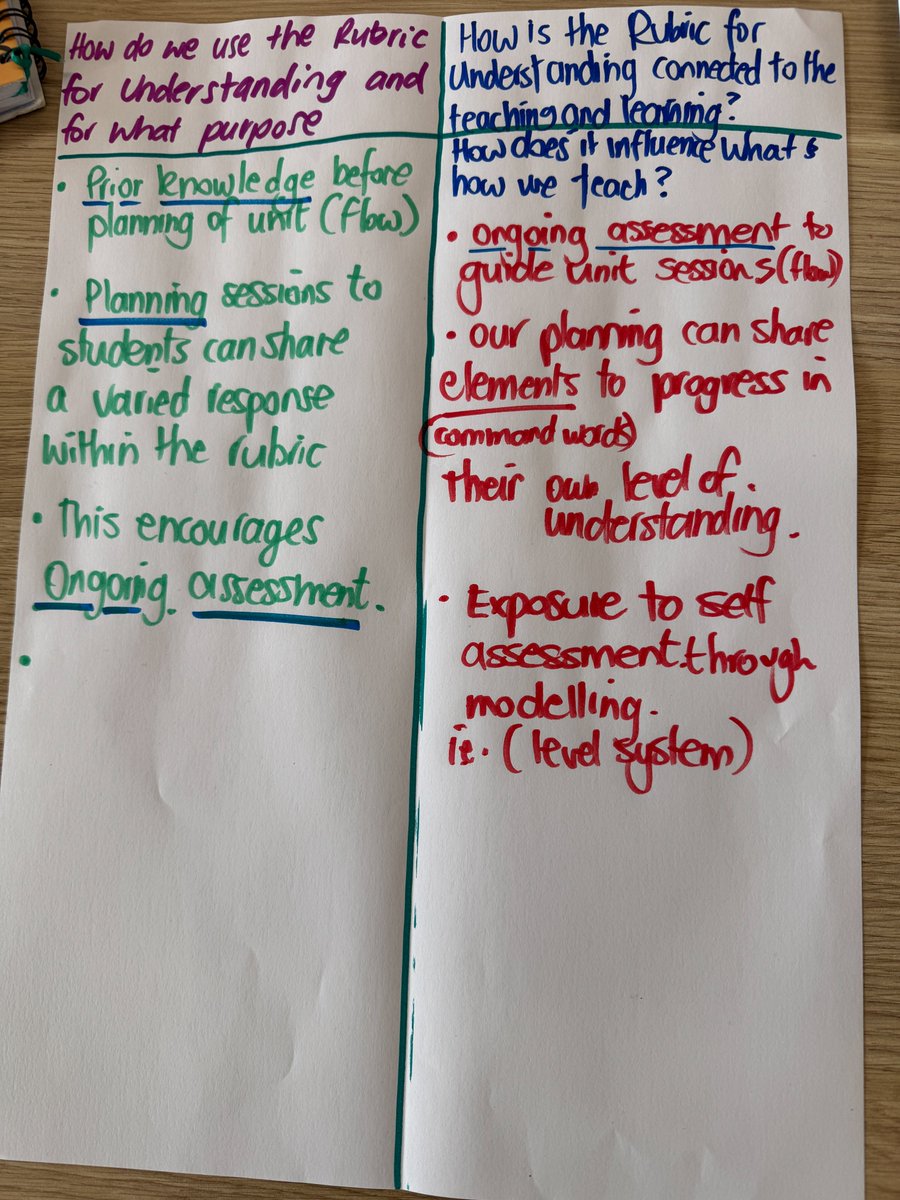 How do we use the Rubric
for Understanding and
for what purpose
• Prior knowledge before
planning of unit (flow)
• Planning sessions to
students can share
a varied response
within the rubric
• This encourages
Ongoing assessment.
•
How is the Rubric for
Understanding connected to the
teaching and learning?
How does it influence what &
how we teach?
• ongoing assessment to
guide unit sessions (flow)
• our planning can share
elements to progress in
(command words)
their own level of
understanding.
• Exposure to self
assessment through
modelling.
ie. (level system)